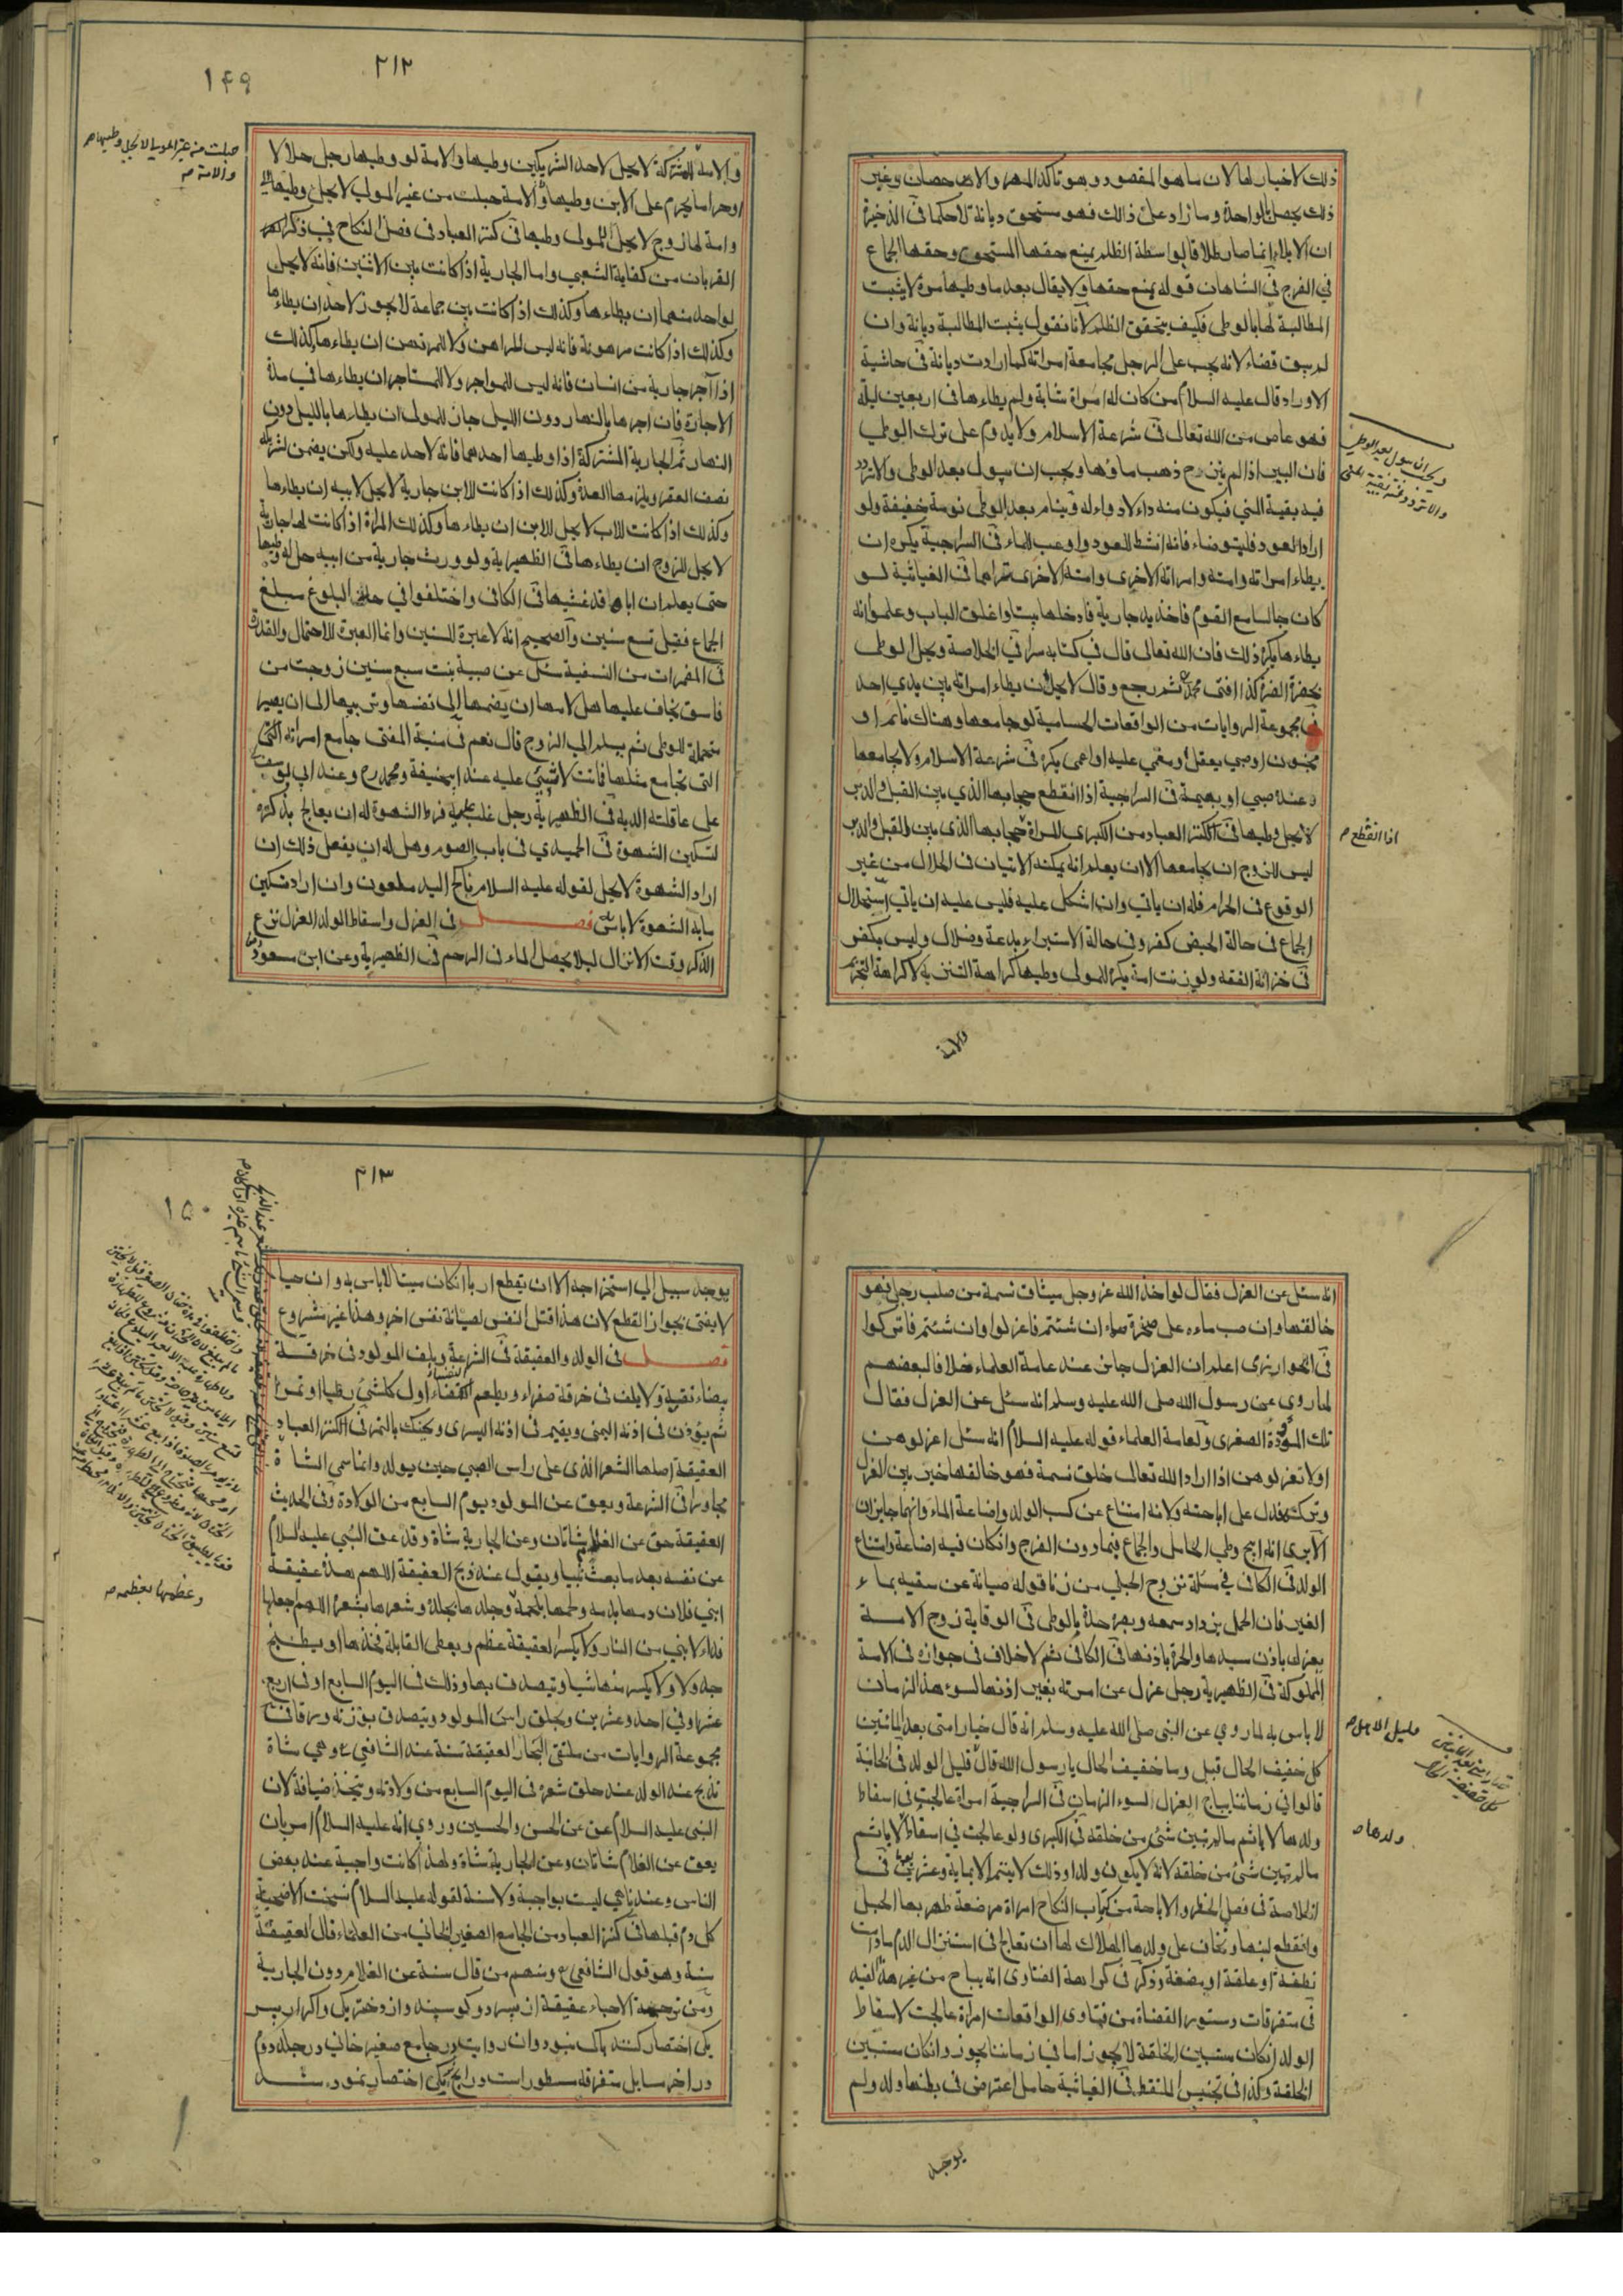 ذلك لاخيار لها لان ما هو المقصود وهو تاكد المهر والاحصان وغير
ذلك يحصل بالواحدة وما زاد على ذالك فهو مستحق ديانة لا حكما فى الذخيرة
ان الايلاء انما صار طلاقا بواسطة الظلم بمنع حقها المستحق وحقها الجماع
في الفرج فى الشاهان قوله بمنع حقها ولا يقال بعد ما وطيها مرة لا يثبت
المطالبة لها بالوطى فكيف يتحقق الظلم لانا نقول يثبت المطالبة ديانة وان
لم يبق قضاء لانه يجب على الرجل مجامعة امراته كما ارادت ديانة فى حاشية
الاوراد قال عليه السلام من كان له امراة شابة ولم يطاءها فى اربعين ليلة
فهو عاص من الله تعالى فى شرعة الاسلام ولا يدوم على ترك الوطي
فان البير اذا لم ينزح ذهب ماؤها ويجب ان يبول بعد الوطى والا تردد
فيه بقية المني فيكون منه داء لا دواء له وينام بعد الوطى نومة خفيفة ولو
اراد العود فليتوضاء فانه انشط للعود واوعب للماء فى السراجية يكره ان
يطاء امراته وامته وامراته الاخرى وامته الاخرى تراهما فى الغياثية لو
كان جالسا مع القوم فاخذ يد جارية فادخلها بيتا واغلق الباب وعلموا انه
يطاءها يكره ذلك فان الله تعالى قال في كتابه سرا في الخلاصة ويحل الوطى
بحضرة الضرة كذا افتى محمد ثم رجع وقال لا يحل ان يطاء امراته بين يدي احد
فى مجموعة الروايات من الواقعات الحسامية لو جامعها وهناك نائم او
مجنون او صبي يعقل او مغمي عليه او اعمى يكره فى شرعة الاسلام ولا يجامعها
وعنده صبي او بهيمة فى السراجية اذا انقطع حجابها الذي بين القبل والدبر
لا يحل وطيها فى الكنز العباد من الكبرى للمراة حجابها الذى بين القبل والدبر
ليس للزوج ان يجامعها الا ان يعلم انه يمكنه الاتيان فى الحلال من غير
الوقوع فى الحرام فله ان ياتي وان اشكل عليه فليس عليه ان ياتي استحلال
الجماع فى حالة الحيض كفر وفى حالة الاستبراء بدعة وضلال وليس بكفر
فى خزانة الفقه ولو زنت امة يكره للمولى وطيها كراهة التنزيه لا كراهة التحريم
والامة
اذا انقطع صح
٢١٢
١٤٩
والامة المشتركة لا يحل لاحد الشريكين وطيها والامة لو وطيها رجل حلالا
او حراما يحرم على الابن وطيها والامة حبلت من غير المولى لا يحل وطيها
وامة لها زوج لا يحل للمولى وطيها فى كنز العباد فى فضل النكاح في ذكر
القربان من كفاية الشعبي واما الجارية اذا كانت بين الاثنين فانه لا يحل
لواحد منهما ان يطاءها وكذلك اذا كانت بين جماعة لا يجوز لاحد ان يطاءها
وكذلك اذا كانت مرهونة فانه ليس للراهن ولا للمرتهن ان يطاءها وكذلك
اذا آجر جارية من انسان فانه ليس للمواجر ولا للمستاجر ان يطاءها في مدة
الاجارة فان اجرها بالنهار دون الليل جاز للمولى ان يطاءها بالليل دون
النهار ثم الجارية المشتركة اذا وطيها احدهما فانه لا حد عليه ولكن يضمن لشريكه
نصف العقر ويلزمها العدة وكذلك اذا كانت للابن جارية لا يحل لابيه ان يطاءها
وكذلك اذا كانت للاب لا يحل للابن ان يطاءها وكذلك المراة اذا كانت لها جارية
لا يحل للزوج ان يطاءها فى الظهيرية ولو ورث جارية من ابيه حل له وطيها
حتى يعلم ان اباه قد غشيها فى الكافى واختلفوا في حد البلوغ مبلغ
الجماع فقيل تسع سنين والصحيح انه لا عبرة للسنين وانما العبرة للاحتمال والقدرة
فى المضمرات من النسفية سئل عن صبية بنت سبع سنين زوجت من
فاسق يخاف عليها هل لامها ان يضمها الى نفسها وتربيها الى ان يصير
متحملة للوطى ثم يسلم الى الزوج قال نعم فى منية المفتى جامع امراته
التى تجامع مثلها فماتت لا شيئ عليه عند ابى حنيفة ومحمد رح وعند ابى يوسف
على عاقلته الدية فى الظهيرية رجل غلب عليه فرط الشهوة له ان يعالج بذكره
لتسكين الشهوة فى الحميدي فى باب الصوم وهل له ان يفعل ذلك ان
اراد الشهوة لا يحل لقوله عليه السلام ناكح اليد ملعون وان اراد تسكين
ما به الشهوة لا باس به فصل فى العزل واسقاط الولد العزل نزع
الذكر وقت الانزال ليلا يحصل الماء فى الرحم فى الظهيرية وعن ابن مسعود
انه سئل عن العزل فقال لو اخذ الله عز وجل ميثاق نسمة من صلب رجل فهو
خالقها وان صب ماءه على صخرة صماء ان شئتم فاعزلوا وان شئتم فاتركوا
فى الخوارزمى اعلم ان العزل جائز عند عامة العلماء خلافا لبعضهم
لما روي عن رسول الله صلى الله عليه وسلم انه سئل عن العزل فقال
تلك الموؤدة الصغرى ولعامة العلماء قوله عليه السلام انه سئل اعزلوهن
او لا تعزلوهن اذا اراد الله تعالى خلق نسمة فهو خالقها خير بين العزل
وتركه فدل على اباحته ولانه امتناع عن كسب الولد واضاعة الماء وانهما جايزان
الا يرى انه ابيح وطي الحامل والجماع فيما دون الفرج وانكان فيه اضاعة وامتناع
الولد فى الكافى في مسئلة تزوج الحبلي من زنا قوله صيانة عن سقيه بماء
الغير فان الحمل يزداد سمعه وبصره حدة بالوطى فى الوقاية زوج الامة
يعزل باذن سيدها والحرة باذنها فى الكافى ثم لا خلاف فى جوازه فى الامة
المملوكة فى الظهيرية رجل عزل عن امرته بغير اذنها لسوء هذا الزمان
لا باس به لما روي عن النبى صلى الله عليه وسلم انه قال خيار امتى بعد المائتين
كل خفيف الحال قيل وما خفيف الحال يا رسول الله قال قليل الولد فى الخانية
قالوا في زماننا يباح العزل لسوء الزمان فى السراجية امراة عالجت فى اسقاط
ولدها لا ياثم ما لم يتبين شئ من خلقه فى الكبرى ولو عالجت في اسقاط لا ياثم
ما لم يتبين شئ من خلقه لانه لا يكون ولدا وذلك لا يتم الا بماية وعشرين يوما فى
الخلاصة فى فصل الحظر والاباحة من كتاب النكاح امراة مرضعة ظهر بها الحبل
وانقطع لبنها وتخاف على ولدها الهلاك لها ان تعالج فى استنزال الدم ما دامت
نطفة او علقة او مضغة وذكر فى كراهة الفتاوى انه يباح من غير هذا القيد
فى متفرقات دستور القضاة من فتاوى الواقعات امراة عالجت لاسقاط
الولد انكان مستبين الخلقة لا يجوز اما في زماننا يجوز وانكان مستبين
الخلقة وكذا فى تجنيس الملتقط فى الغياثية حامل اعترض فى بطنها ولد ولم
يوجد
قليل الاهل صح
ولدها صح
٢١٣
١٥٠
يوجد سبيل الى استخراجه الا ان تقطع اربا انكان ميتا لا باس به وان حيا
لا يفتى بجواز القطع لان هذا قتل النفس لصيانة نفس اخر وهذا غير مشروع
فصل فى الولد والعقيقة فى الشرعة ويلف المولود فى خرقة
بيضاء نقية ولا يلف فى خرقة صفراء ويطعم النفساء اول كل شئ رطبا او تمرا
ثم يؤذن فى اذنه اليمنى ويقيم فى اذنه اليسرى ويحنك بالتمر فى الكنز العباد
العقيقة اصلها الشعر الذى على راس الصبي حين يولد وانما سمي الشاة
مجاورا فى الشرعة ويعق عن المولود يوم السابع من الولادة وفى الحديث
العقيقة حق عن الغلام شاتان وعن الجارية شاة وقد عق النبي عليه السلام
عن نفسه بعد ما بعث نبيا ويقول عند ذبح العقيقة اللهم هذه عقيقة
ابني فلان دمها بدمه ولحمها بلحمه وجلدها بجلده وشعرها بشعره اللهم اجعلها
فداء لابني من النار ولا يكسر لعقيقة عظم ويعطى القابلة فخذها او يطبخ
جدولا ولا يكسر منها شيا ويتصدق بها وذلك فى اليوم السابع او فى اربع
عشر او في احد وعشرين ويحلق راس المولود ويتصدق بوزنه ورقا فى
مجموعة الروايات من ملتقى البحار العقيقة سنة عند الشافعي وهي شاة
تذبح عند الولد عند حلق شعره فى اليوم السابع من ولادته ويتخذ ضيافة لان
النبى عليه السلام عق عن الحسن والحسين وروي انه عليه السلام امر بان
يعق عن الغلام شاتان وعن الجارية شاة ولهذا كانت واجبة عند بعض
الناس وعندنا هي ليست بواجبة ولا سنة لقوله عليه السلام نسخت الاضحية
كل دم قبلها فى كنز العباد من الجامع الصغير الخانى من العلماء قال العقيقة
سنة وهو قول الشافعي ومنهم من قال سنة عن الغلام دون الجارية
ومن ترجمة الاحياء عقيقة از پسر دو كوسپند واز دختر يكى واكر از پسر
يكى اختصار كنند باك نبود وان روايت در جامع صغير خانى در جلد دوم
در اخر مسايل متفرقه مسطور است
وعظمها بعظمه صح